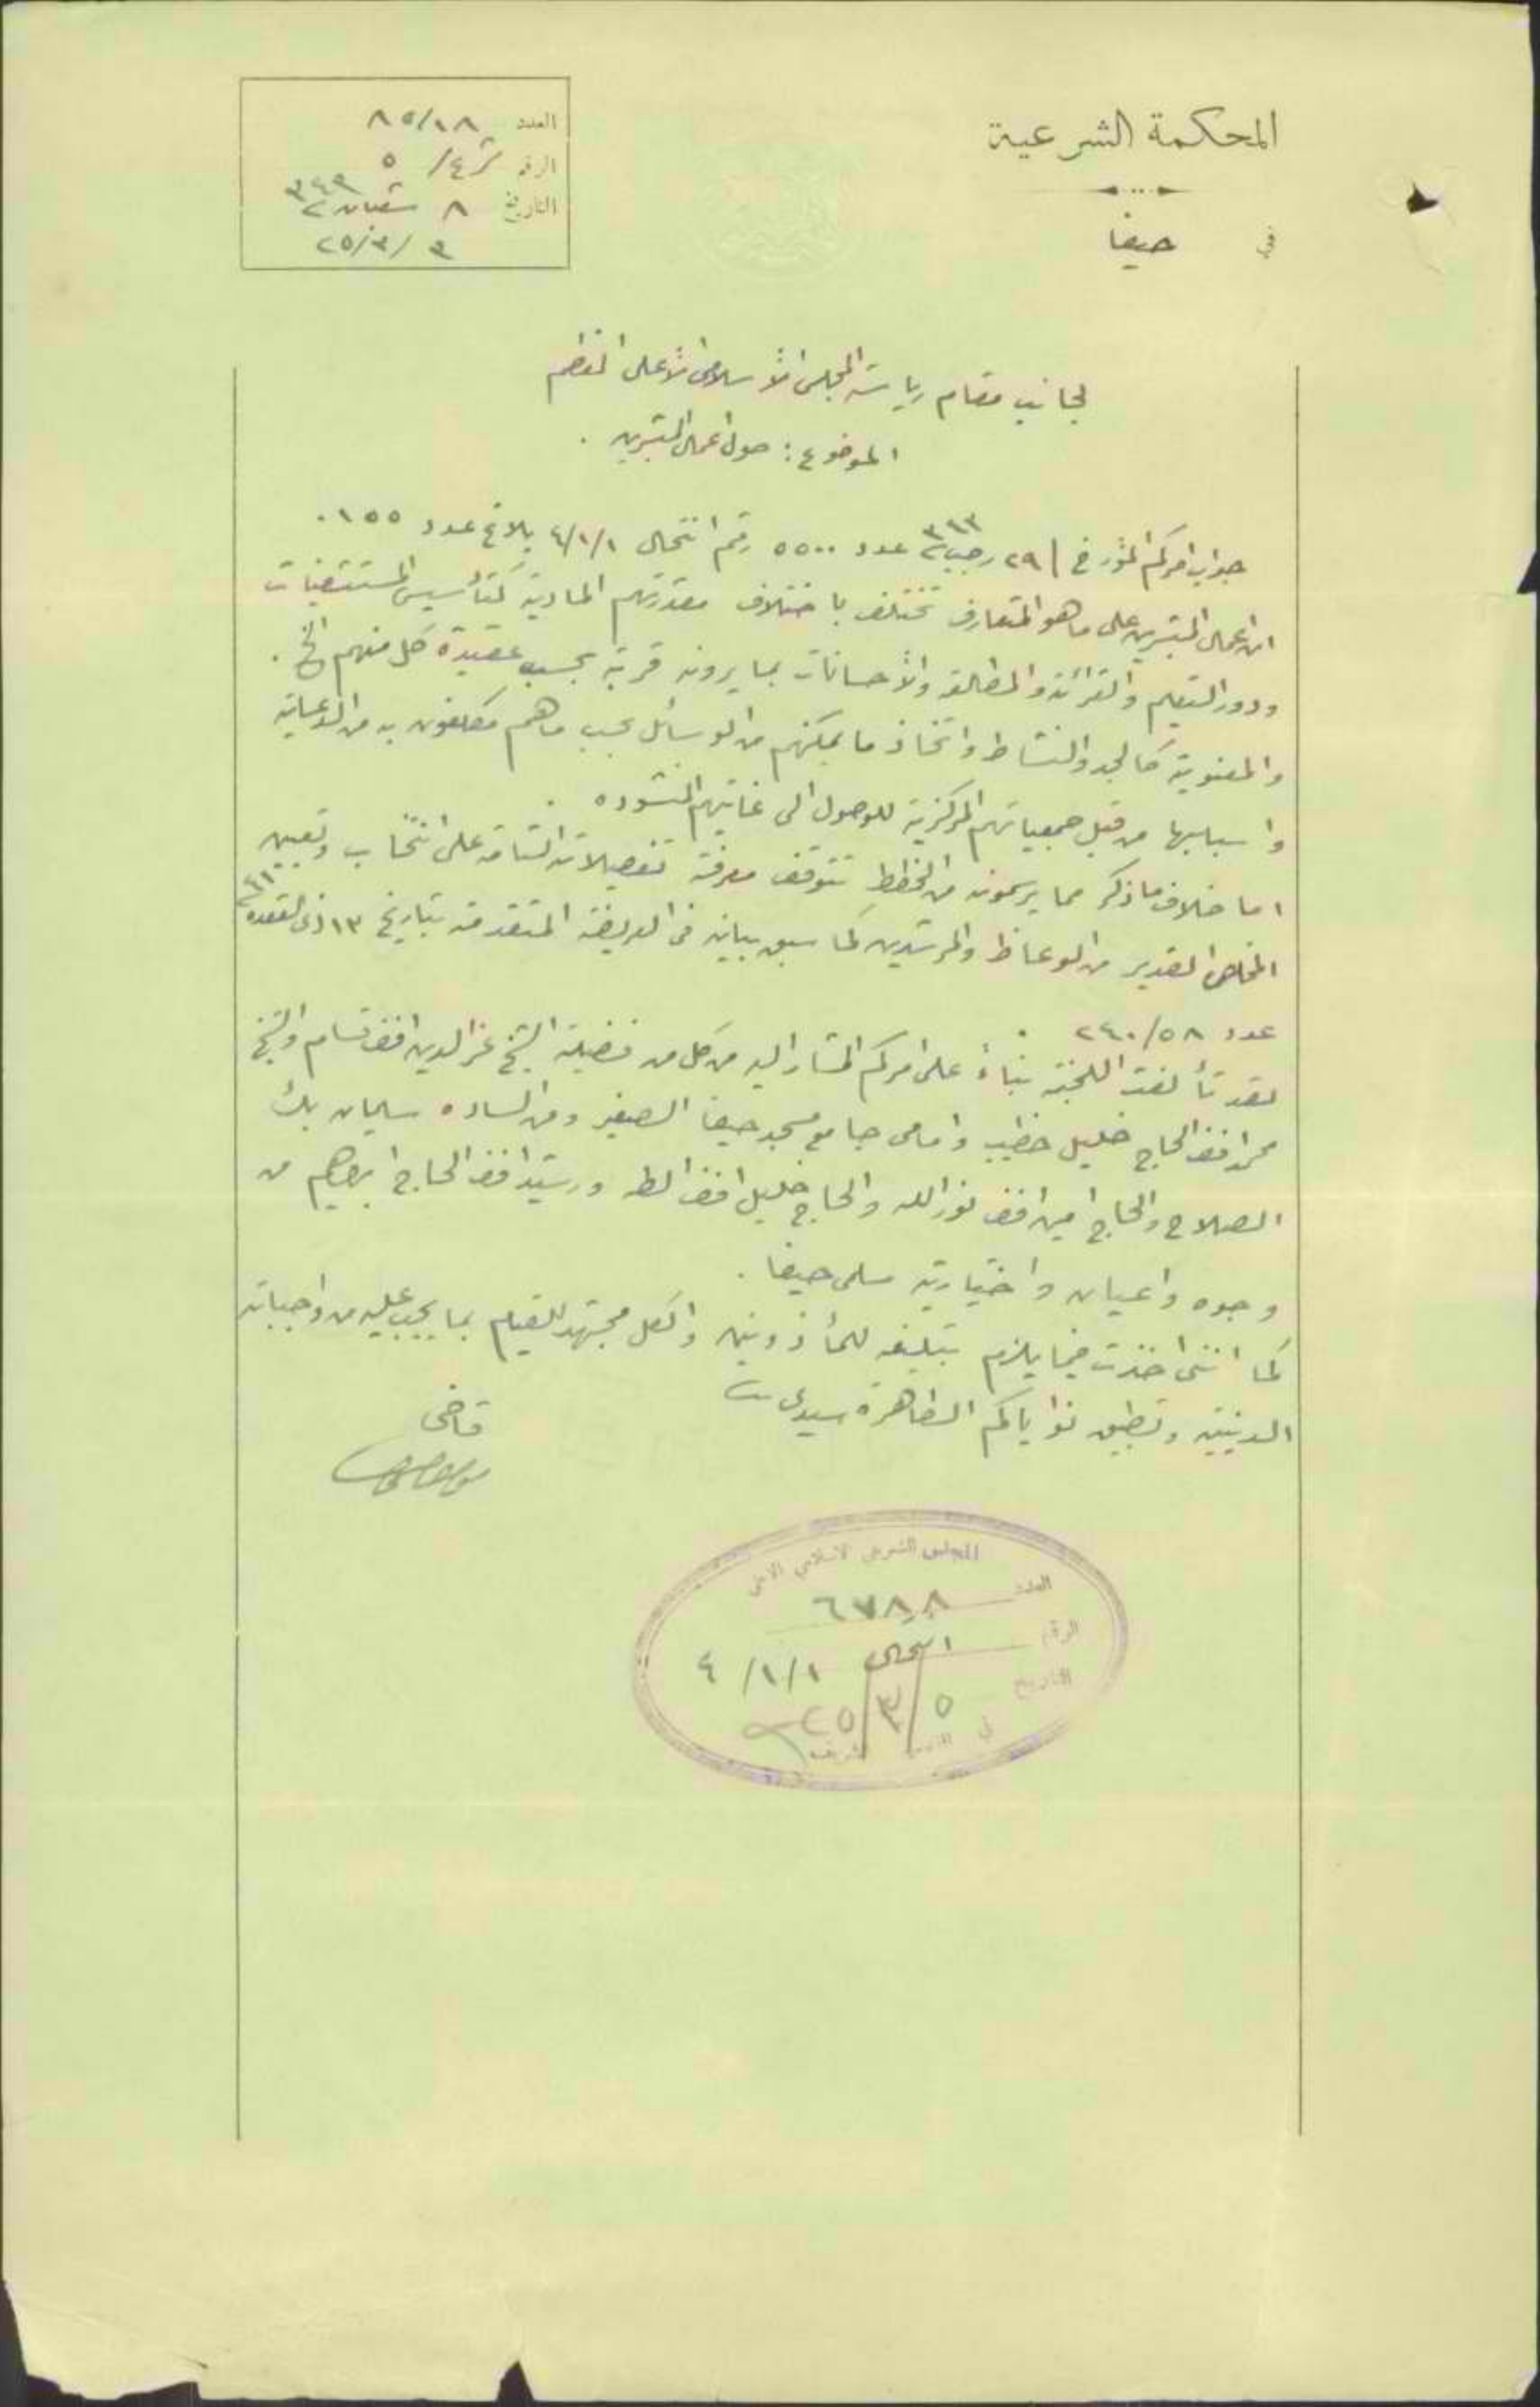 المحكمة الشرعية
في حيفا
العدد ٨٥/١٨
الرقم ٥ /٤/
التاريخ ٨ شعبان ٣٤٣
٢٥/٣/٣
لجانب مقام رياسة المجلس الأسلامى الأعلى المعظم
الموضوع : حول اعمال المبشرين .
جواب امركم المؤرخ ٢٩ رجب ٣٤٣ عدد ٥٥٠٠ رقم انتحال ٤/١/١ بلاغ عدد ١٥٥ .
ان اعمال المبشرين على ما هو المتعارف تختلف باختلاف مقدرتهم المادية كتأسيس المستشفيات
ودور التعليم والقرائة والمطالعة والأحسانات بما يرونه قربة بحسب عقيدة كل منهم الخ .
والمعنوية كالجد والنشاط واتخاذ ما يمكنهم من الوسائل بحسب ما هم مكلفون به من الدعاية
واسبابها من قبل جمعياتهم المركزية للوصول الى غايتهم المنشوده .
اما خلاف ما ذكر مما يرسمونه من الخطط تتوقف معرفة تفصيلاته التامة على انتخاب وتعيين
المخلص القدير من الوعاظ والمرشدين كما سبق بيانه فى العريضة المتقدمة بتاريخ ١٣ ذى القعده
عدد ٢٤٠/٥٨ .
لقد تألفت اللجنة بناءً على امركم المشار اليه من كل من فضيلة الشيخ عز الدين افندى قسام والشيخ
محمد افندى الحاج خليل خطيب وامامى جامع مسجد حيفا الصغير ومن الساده سليمان بك
الصلاح والحاج امين افندى نور الله والحاج خليل افندى طه ورشيد افندى الحاج ابراهيم من
وجوه واعيان واختيارية مسلمى حيفا .
كما اننى اخذت فيما يلزم بتبليغه للمأذونين والكل مجتهد للقيام بما يجب عليه من واجباته
الدينيه وتطبيق نواياكم الطاهرة سيدى
قاضى
المجلس الشرعي الاسلامي الاعلى
العدد ٦٧٨٨
الرقم انتحال ٤/١/١
التاريخ ٢٥/٣/٥
في القدس الشريف